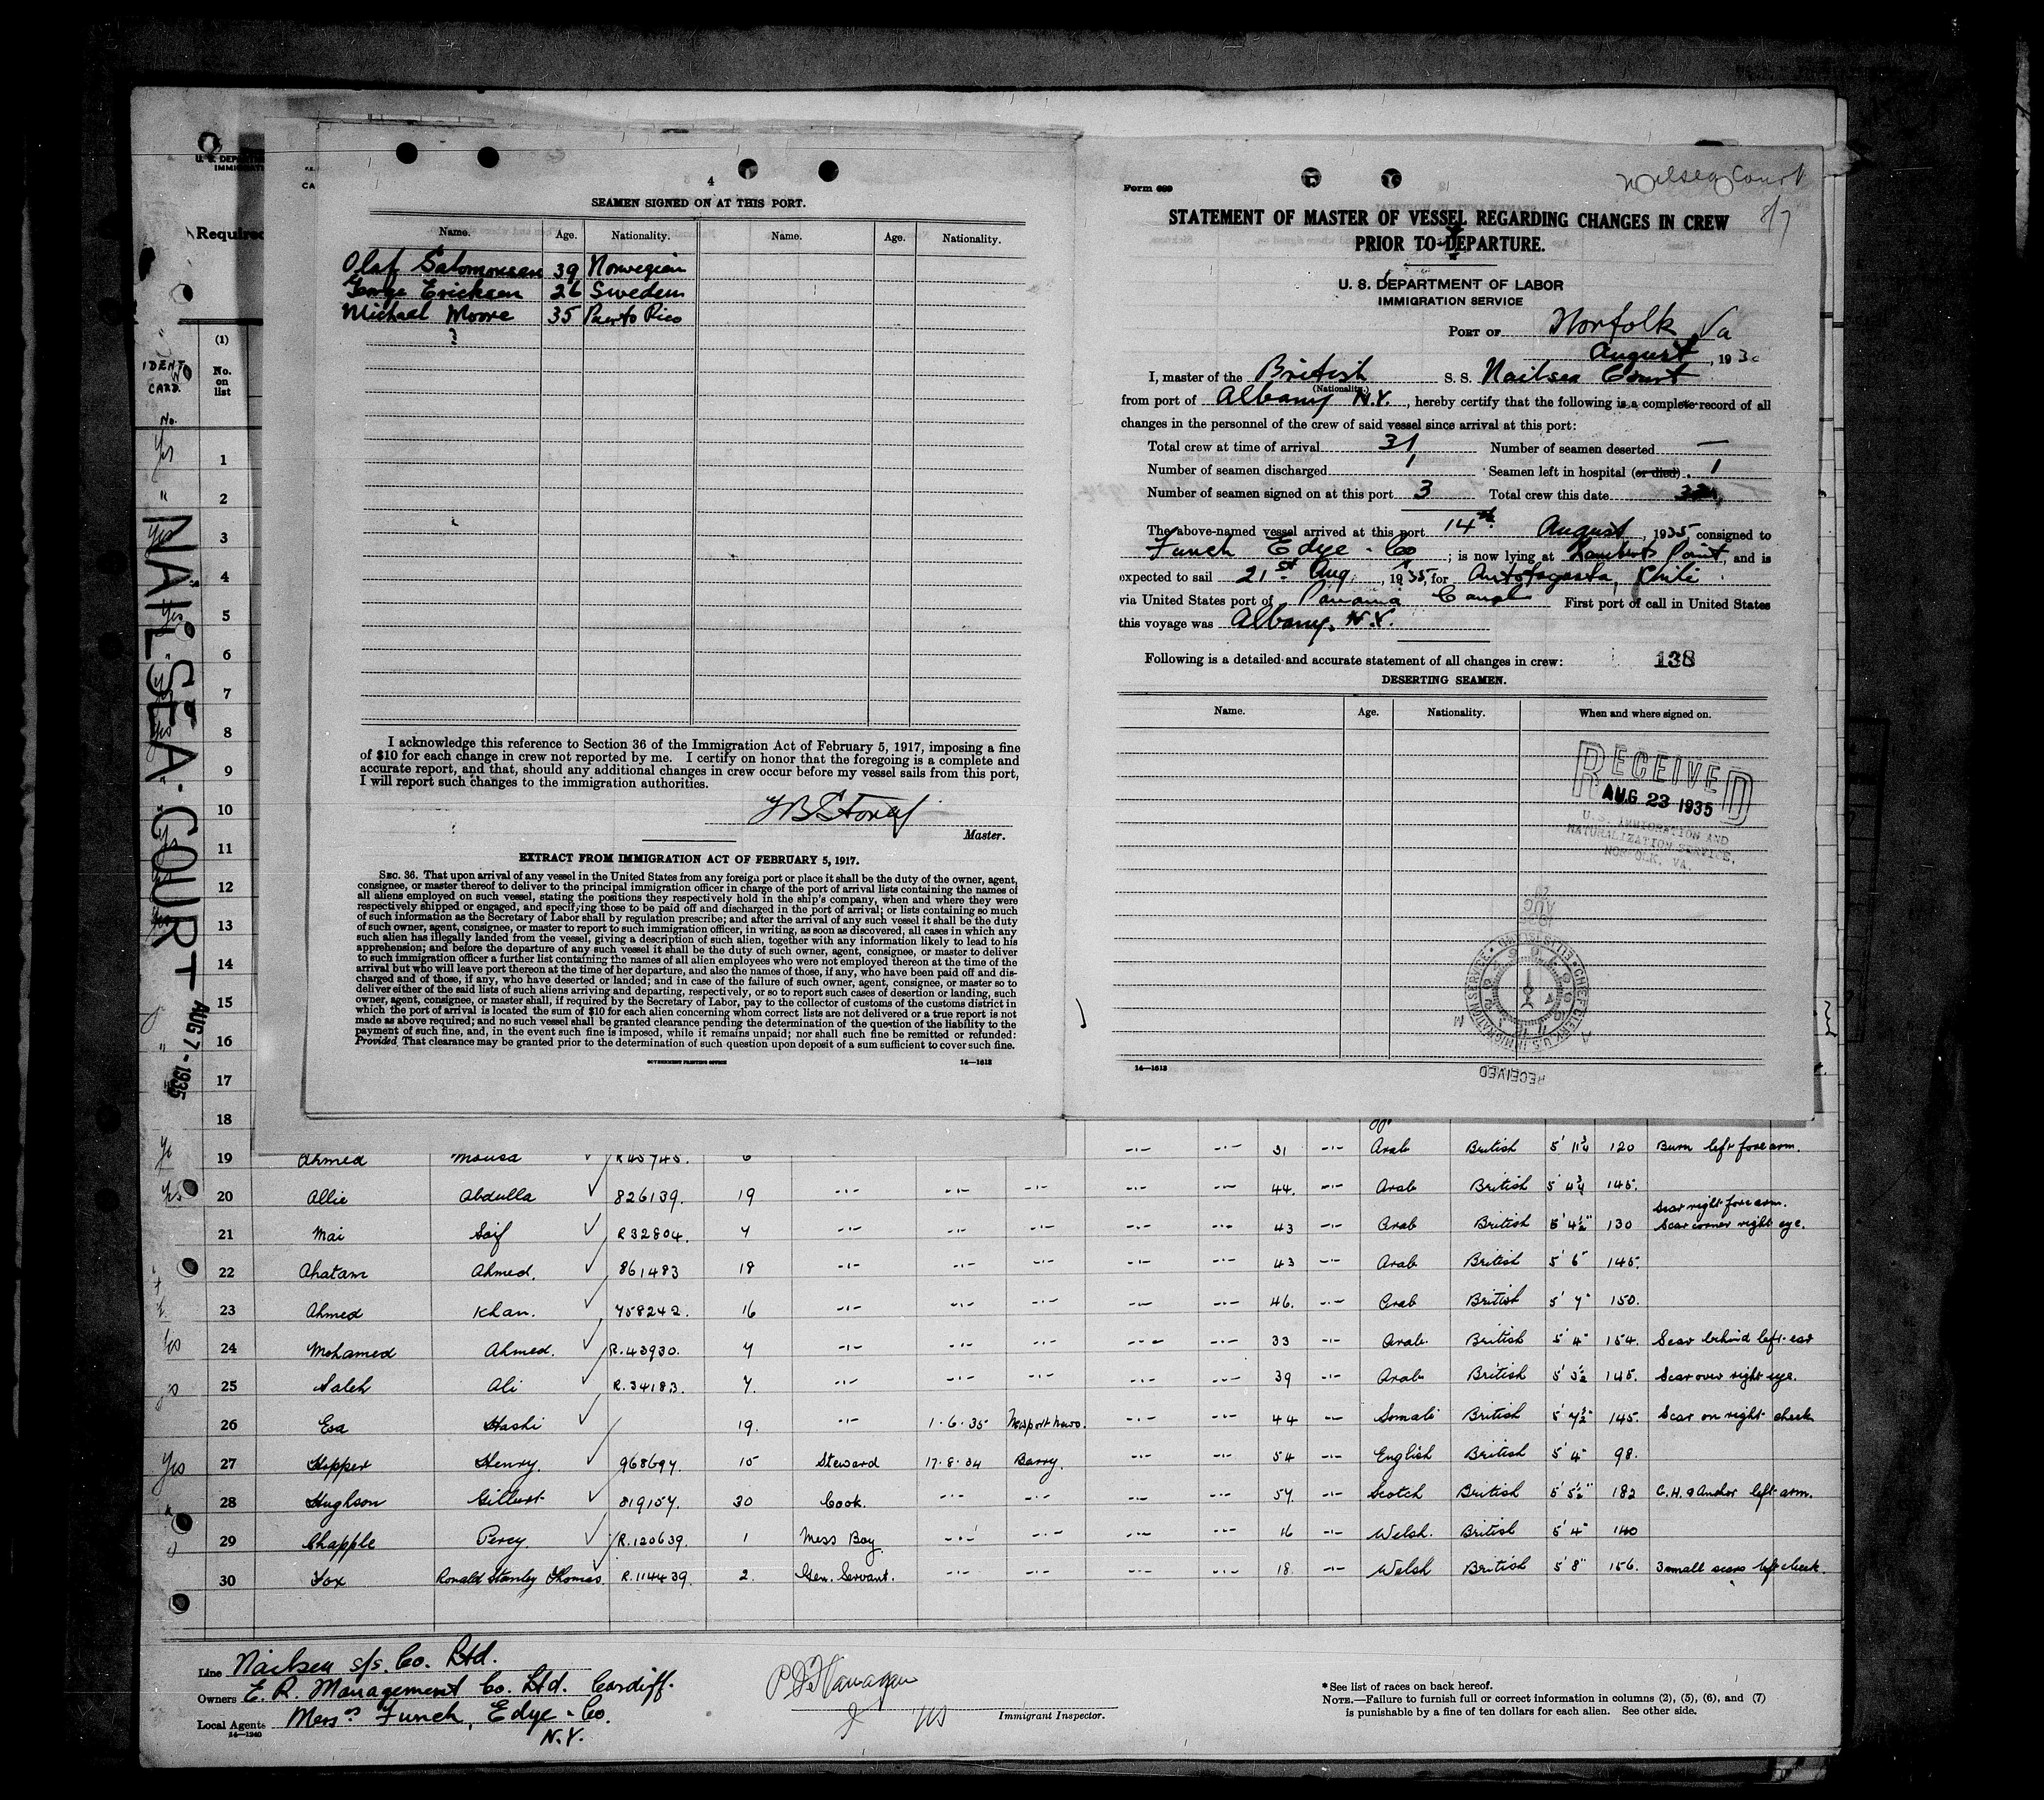 4
SEAMEN SIGNED ON AT THIS PORT.
Name. Age. Nationality. Name. Age. Nationality.
Olaf Salomonsen 39 Norwegian
George Ericksen 26 Sweden
Michael Moore 35 Puerto Rico
?
I acknowledge this reference to Section 36 of the Immigration Act of February 5, 1917, imposing a fine
of $10 for each change in crew not reported by me. I certify on honor that the foregoing is a complete and
accurate report, and that, should any additional changes in crew occur before my vessel sails from this port,
I will report such changes to the immigration authorities.
Master.
EXTRACT FROM IMMIGRATION ACT OF FEBRUARY 5, 1917.
SEC. 36. That upon arrival of any vessel in the United States from any foreign port or place it shall be the duty of the owner, agent,
consignee, or master thereof to deliver to the principal immigration officer in charge of the port of arrival lists containing the names of
all aliens employed on such vessel, stating the positions they respectively hold in the ship's company, when and where they were
respectively shipped or engaged, and specifying those to be paid off and discharged in the port of arrival; or lists containing so much
of such information as the Secretary of Labor shall by regulation prescribe; and after the arrival of any such vessel it shall be the duty
of such owner, agent, consignee, or master to report to such immigration officer, in writing, as soon as discovered, all cases in which any
such alien has illegally landed from the vessel, giving a description of such alien, together with any information likely to lead to his
apprehension; and before the departure of any such vessel it shall be the duty of such owner, agent, consignee, or master to deliver
to such immigration officer a further list containing the names of all alien employees who were not employed thereon at the time of the
arrival but who will leave port thereon at the time of her departure, and also the names of those, if any, who have been paid off and dis-
charged and of those, if any, who have deserted or landed; and in case of the failure of such owner, agent, consignee, or master so to
deliver either of the said lists of such aliens arriving and departing, respectively, or so to report such cases of desertion or landing, such
owner, agent, consignee, or master shall, if required by the Secretary of Labor, pay to the collector of customs of the customs district in
which the port of arrival is located the sum of $10 for each alien concerning whom correct lists are not delivered or a true report is not
made as above required; and no such vessel shall be granted clearance pending the determination of the question of the liability to the
payment of such fine, and, in the event such fine is imposed, while it remains unpaid; nor shall such fine be remitted or refunded:
Provided That clearance may be granted prior to the determination of such question upon deposit of a sum sufficient to cover such fine.
GOVERNMENT PRINTING OFFICE 14—1613
Form 689
Nailsea Court
STATEMENT OF MASTER OF VESSEL REGARDING CHANGES IN CREW
PRIOR TO DEPARTURE.
U. S. DEPARTMENT OF LABOR
IMMIGRATION SERVICE
PORT OF Norfolk Va
August, 193
I, master of the British S. S. Nailsea Court
(Nationality.)
from port of Albany N.Y., hereby certify that the following is a complete record of all
changes in the personnel of the crew of said vessel since arrival at this port:
Total crew at time of arrival 31 Number of seamen deserted —
Number of seamen discharged 1 Seamen left in hospital (or died) 1
Number of seamen signed on at this port 3 Total crew this date
The above-named vessel arrived at this port 14th August, 1935, consigned to
Funch Edye & Co; is now lying at Lamberts Point, and is
expected to sail 21st Aug, 1935, for Antofagasta, Chili.
via United States port of Panama Canal First port of call in United States
this voyage was Albany, N.Y.
Following is a detailed and accurate statement of all changes in crew: 138
DESERTING SEAMEN.
Name. Age. Nationality. When and where signed on.
RECEIVED
AUG 23 1935
U.S. IMMIGRATION AND
NATURALIZATION SERVICE,
NORFOLK, VA.
CHIEF CLERK U.S. IMMIGRATION SERVICE ELLIS ISLAND
RECEIVED
14—1613
Required
(1)
IDENT CARD. No. on list
No.
NAILSEA COURT
AUG 7-1935
1
2
3
4
5
6
7
8
9
10
11
12
13
14
15
16
17
18
19 Ahmed Mousa R45745. 6 31 Arab British 5' 11¾ 120 Burn left forearm.
20 Allie Abdulla 826139. 19 44. Arab British 5' 4¾ 145.
21 Mai Saif R32804. 7 43 Arab British 5' 4½" 130 Scar right forearm. Scar corner right eye.
22 Ahatam Ahmed. 861483 18 43 Arab British 5' 6" 145.
23 Ahmed Khan. 758242. 16 46. Arab British 5' 7" 150.
24 Mohamed Ahmed. R.43930. 7 33 Arab British 5' 4" 154. Scar behind left ear
25 Saleh Ali R.34183. 7. 39 Arab British 5' 3½ 145. Scar over right eye.
26 Esa Hashi 19. 1.6.35 Newport News. 44 Somali British 5' 7½" 145. Scar on right cheek
27 Hopper Henry. 968697. 15 Steward 17.8.34 Barry. 54 English British 5' 4" 98.
28 Hughson Gilbert 819157. 30 Cook. 57. Scotch British 5' 5½" 182 G.H. & Anchor left arm.
29 Chapple Percy. R.120639. 1 Mess Boy. 16 Welsh. British 5' 4" 140
30 Fox Ronald Stanley Thomas. R.114439. 2. Gen. Servant. 18 Welsh British 5' 8" 156. 3 small scars left cheek.
Line Nailsea s/s. Co. Ltd.
Owners E. R. Management Co. Ltd. Cardiff.
Local Agents Messrs Funch, Edye & Co.
N.Y.
14—1240
Immigrant Inspector.
*See list of races on back hereof.
NOTE.—Failure to furnish full or correct information in columns (2), (5), (6), and (7)
is punishable by a fine of ten dollars for each alien. See other side.